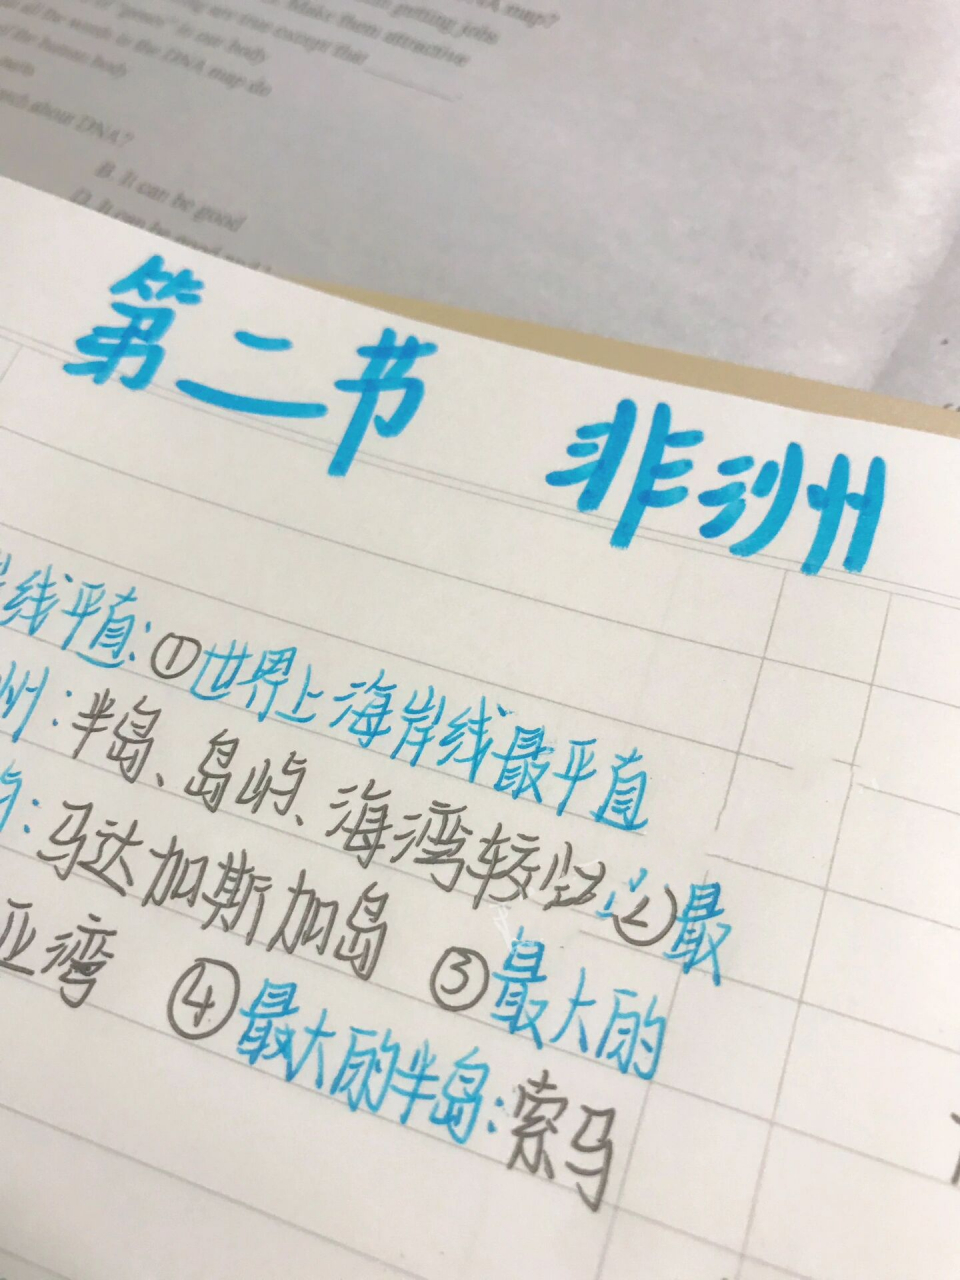 DNA map?
getting jobs
Make them attractive
are true except that
in our body
in the DNA map do
the human body
about DNA?
B. It can be good
D. It can be good and
第二节 非洲
线平直:①世界上海岸线最平直
州:半岛、岛屿、海湾较少 ②最
:马达加斯加岛 ③最大的
亚湾 ④最大的半岛:索马